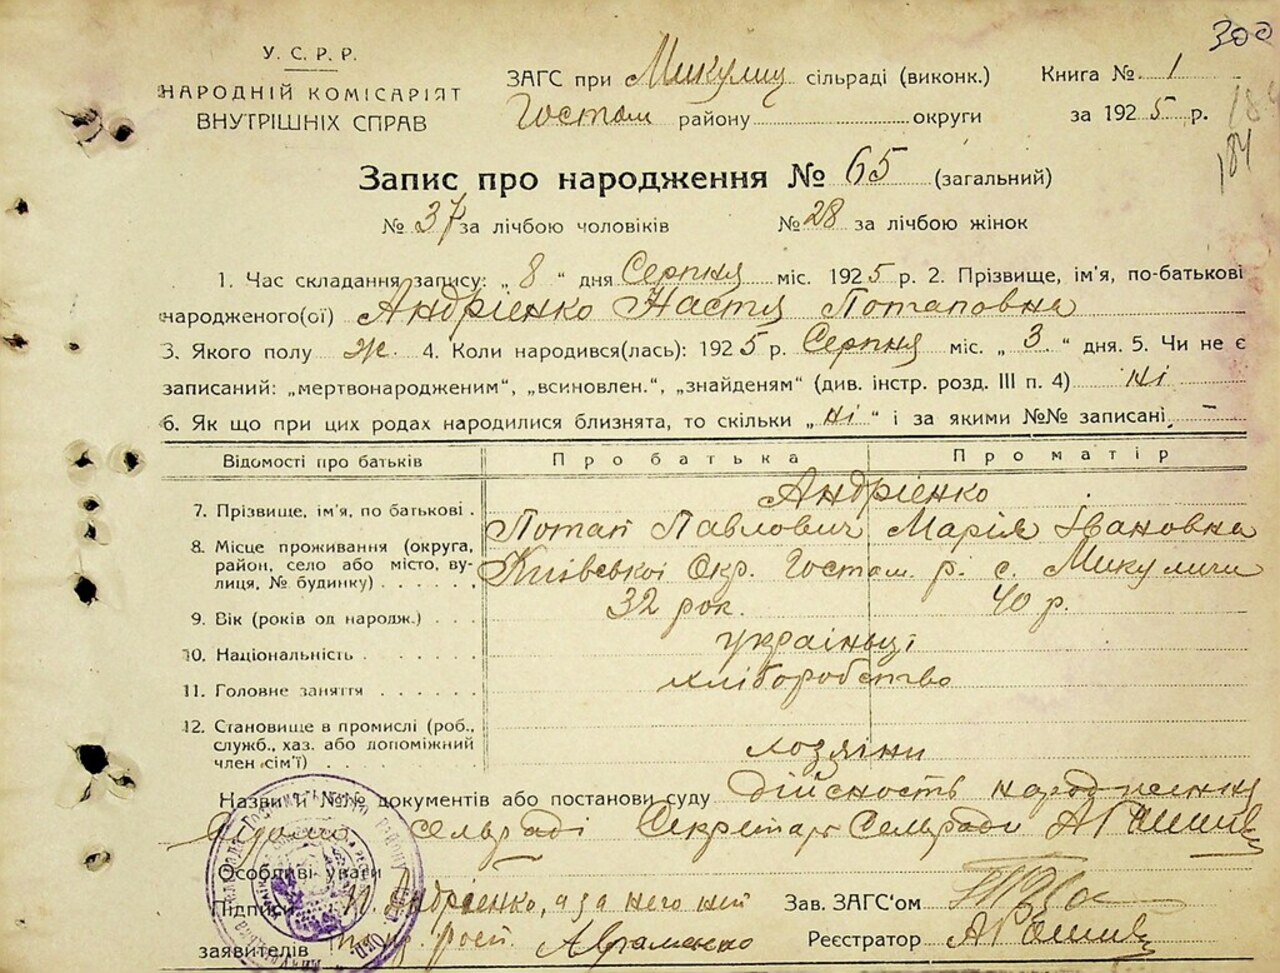 300
У. С. Р. Р.
НАРОДНІЙ КОМІСАРІЯТ
ВНУТРІШНІХ СПРАВ
ЗАГС при Микулиц сільраді (виконк.) Книга № 1
Гостом району округи за 1925 р.
184
Запис про народження № 65 (загальний)
№ 37 за лічбою чоловіків № 28 за лічбою жінок
1. Час складання запису: „ 8 “ дня Серпня міс. 1925 р. 2. Прізвище, ім'я, по-батькові
народженого(ої) Андрієнко Настя Потаповна
3. Якого полу ж. 4. Коли народився(лась): 1925 р. Серпня міс. „ 3. “ дня. 5. Чи не є
записаний: „мертвонародженим“, „всиновлен.“, „знайденям“ (див. інстр. розд. III п. 4) ні
6. Як що при цих родах народилися близнята, то скільки „ ні “ і за якими №№ записані –
Відомості про батьків Про батька Про матір
Андрієнко
7. Прізвище, ім'я, по батькові .
Потап Павлович Марія Івановна
8. Місце проживання (округа,
район, село або місто, ву-
лиця, № будинку)
Київської Окр. Гостом. р. с. Микуличи
9. Вік (років од народж.) 32 рок. 40 р.
10. Національність українці
11. Головне заняття хліборобство
12. Становище в промислі (роб.,
служб., хаз. або допоміжний
член сім'ї) хозяіни
Назви й №№ документів або постанови суду дійсность народження
сельраді Секретарь Сельради
Особливі уваги
Підписи Андрієнко, а за него Зав. ЗАГС'ом
заявителів Авраменко Реєстратор